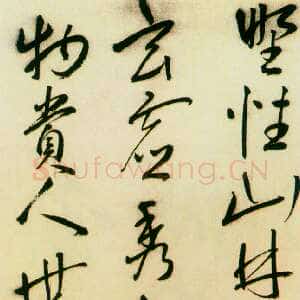 野性山林
玄虚秀
物贵人世
Shufawang.CN